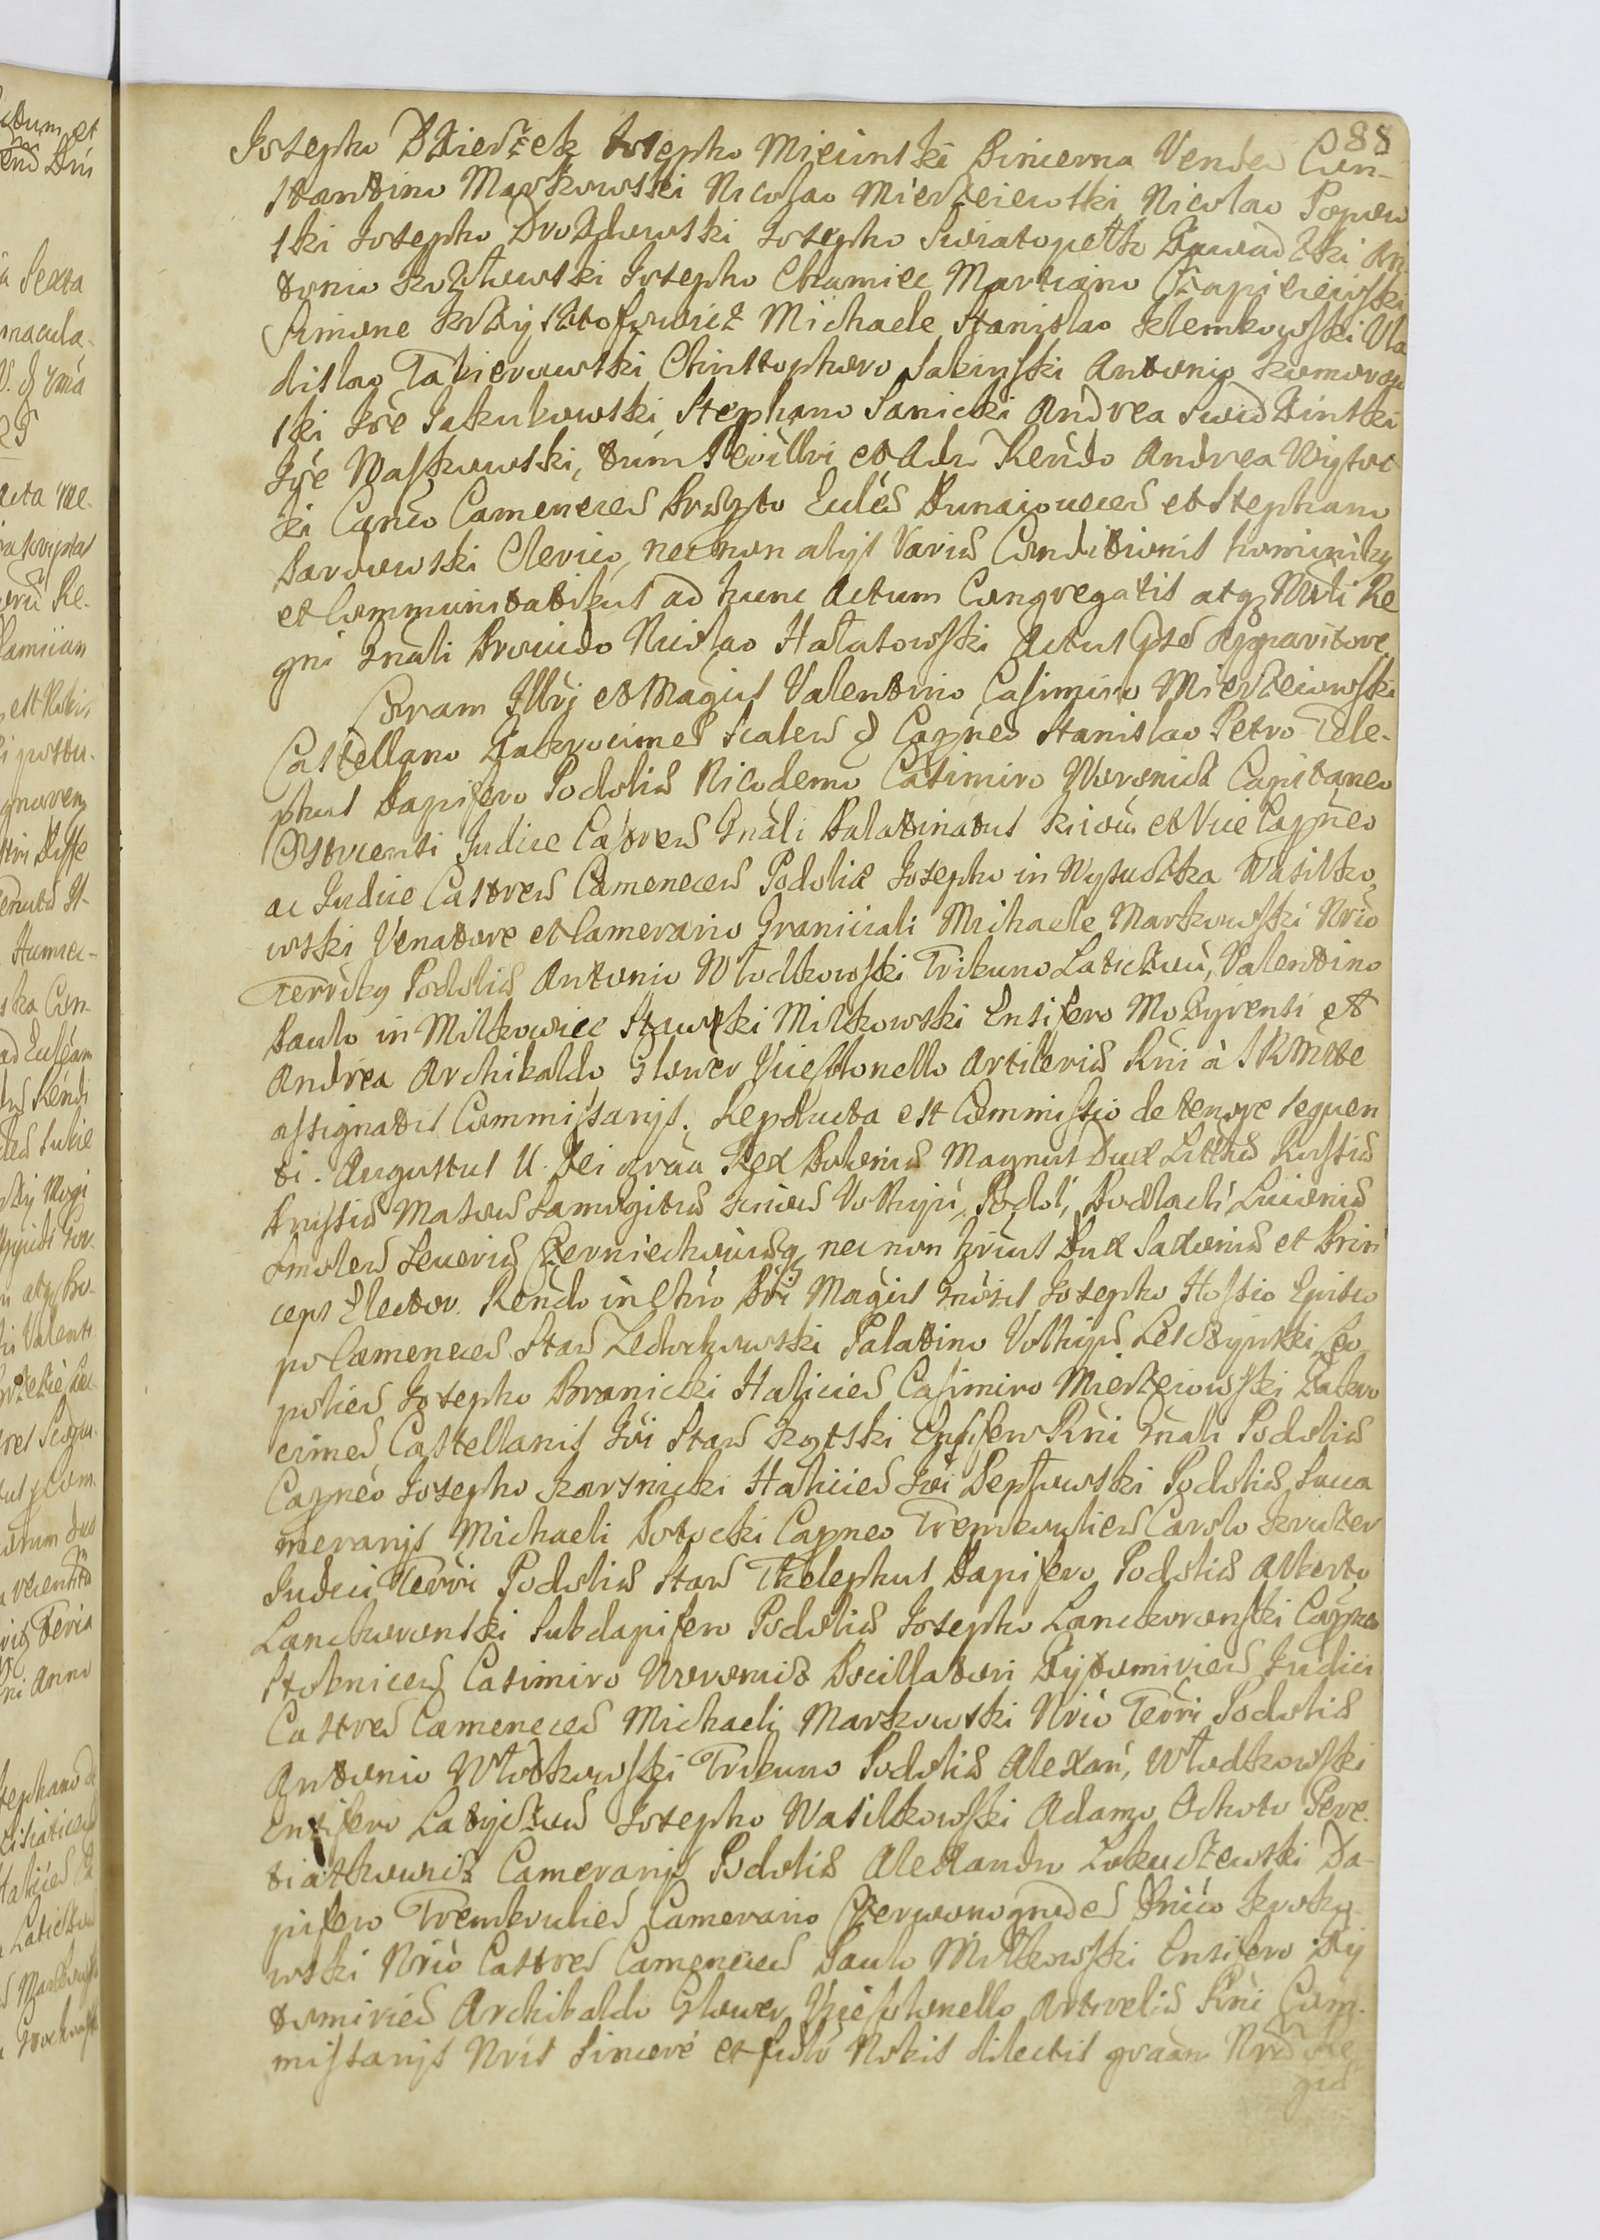 88
Josepho Dzierżek Josepho Mieiinski Pincerna Venden Con-
stantino Markowski Nicolao Mierzeiewski Nicolao Popow
ski Josepho Drozdowski Josepho Swiatopełk Zawadzki An
tonio Kozłowski Josepho Chamiec Martiano Czapiliewski
Simone Krzysztofowicz Michaele Stanislao Klembowski Vla
dislao Takierowski Christophoro Sabinski Antonio Komorow
ski Jòe Jakubowski Stephano Sanicki Andrea Swidzinski
Jòe Waskowski, tùm et Adm Rendo Andrea
ki Canco Camenecen Prępto Ecclen Dunaiovecen et Stephano
Barowski Clerico, nec non alijs Varia Conditionis hominibq
et Communitatibus ad hunc Actum Congregatis atq Mtli Re
gni Gnali Provido Nicolao Hałatowski Actus pñs
Coram Illbi et Magcis Valentino Casimiro Mierzeiowski
Castellano Zakrocimen Scalen & Capneo Stanislao Petro Tele-
phus Dapifero Podolia Nicodemo Casimiro Woronicz Capitaneo
Ostrcensi Judice Castren Gnali Palatinatus Kiiovia et Vice Capneo
ac Judice Castren Camenecen Podolia Josepho in Wysuczka Wasilko
wski Venatore et Camerario Graniciali Michaele Markowski Nrio
Terribq Podolia Antonio Włodkowski Tribuno Laticzovi, Valentino
Paulo in Milkowice Stawski Milkowski Ensifero Mozyrensi et
Andrea Archibaldo Glower ViceCollonello Artileria Rni à SRMtte
assignatis Commissarijs. Reproducta est Commissio de tenore sequen
ti. Augustus II. Dei gràa Rex Polonia Magnus Dux Litthua Russia
Prussia Masov Samogitia Kiiov Volhyn, Podol, Podlach Livonia
Smolen Severia Czerniechoviaq nec non hrius Dux Saxonia et Prin
ceps Elector. Rendo in Chro Pri Magcis Gnosis Josepho Hosio Episco
po Camenecen Stan Ledochowski Palatino Volhyn Lesczynski Leo
polien Josepho Branicki Halicien Casimiro Mierzeiowski Zakro
cimen Castellanis Jòi Stan Kątski Ensifero Rni Gnali Podolia
Capneo Josepho Karsnicki Halicien Jòi Pepłowski Podolia Succa
merarijs Michaeli Potocki Capneo Trembovlien Carolo Kruzer
Judici Terri Podolia Stan Thelephus Dapifero Podolia Alberto
Lanckoronski Subdapifero Podolia Josepho Lanckoronski Capneo
Stobnicen Casimiro Woronicz Pocillatori Zytomirien Judici
Castren Camenecen Michaeli Markowski Nrio Terri Podolia
Antonio Włodkowski Tribuno Podolia Alexan, Włodkowski
Ensifero Latyczov Josepho Wasilkowski Adamo Ochoto Pere
tiatkowicz Camerarijs Podolia Alexandro Lokuczewski Da-
pifero Trembovlien Camerario Czerwonogroden Fnico Krosko
wski Nrio Castren Camenecen Paulo Milkowski Ensifero Zy
tomirien Archibaldo Glower ViceColonello Artirelia Rni Com-
missarijs Nris Sincere et fidlr Nobis dilectis gràan Nrã Re
gia